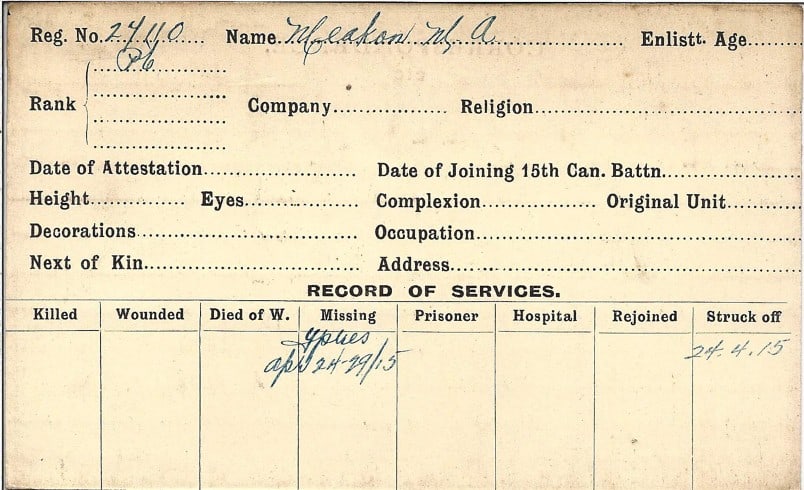 Reg. No. 24110 Name Meakon M, A Enlistt. Age
Rank
Company Religion
Date of Attestation Date of Joining 15th Can. Battn.
Height Eyes Complexion Original Unit
Decorations Occupation
Next of Kin Address
RECORD OF SERVICES.
Killed Wounded Died of W. Missing Prisoner Hospital Rejoined Struck off
Ypres 24.4.15
Apl 24-29/15